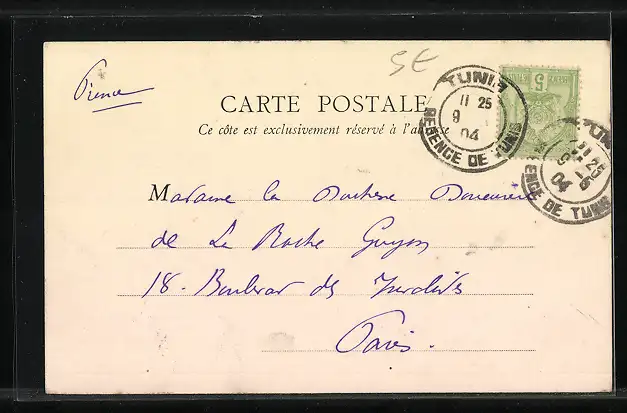 France
5E
CARTE POSTALE
Ce côte est exclusivement réservé à l'adresse
TUNIS
11 25
9
04
REGENCE DE TUNIS
5
TUNIS
11 25
9
04
REGENCE DE TUNIS
Madame la Duchesse Douairière
de La Roche Guyon
18. Boulevar des Invalides
Paris.